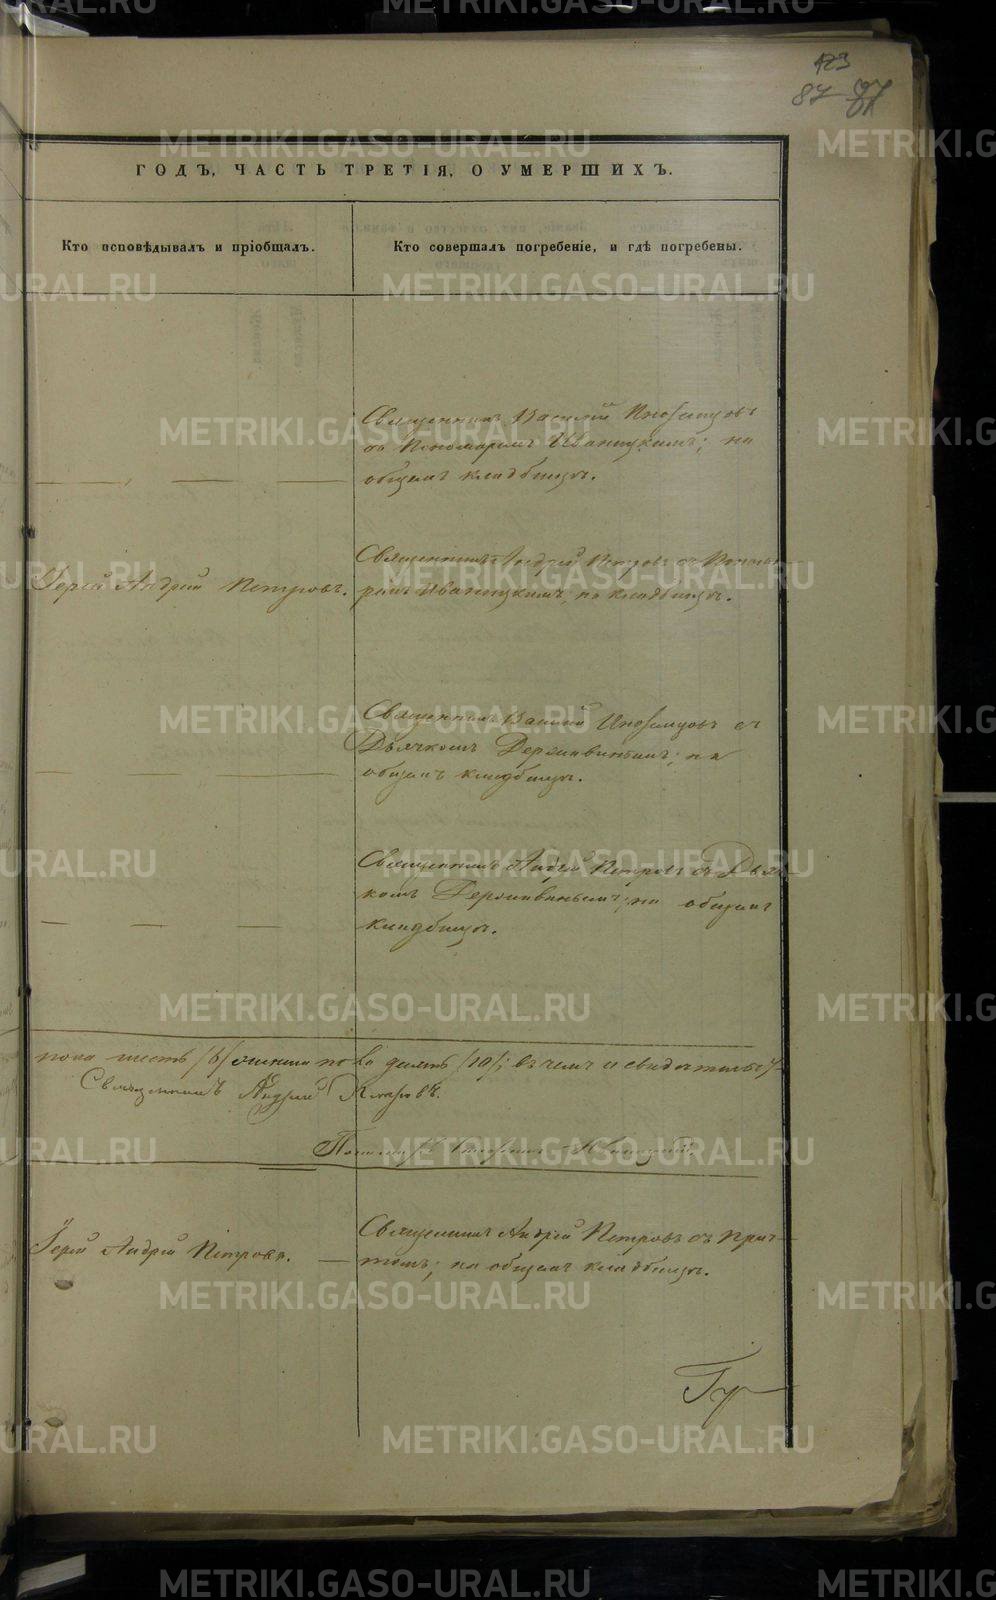 123
87
ГОДЪ, ЧАСТЬ ТРЕТІЯ, О УМЕРШИХЪ.
Кто исповѣдывалъ и пріобщалъ.
Кто совершалъ погребеніе, и гдѣ погребены.
Священникъ Василій Иноземцовъ
съ Пономаремъ Иваницкимъ; на
общемъ кладбищѣ.
Іерей Андрей Петровъ.
Священникъ Андрей Петровъ съ Понома-
ремъ Иваницкимъ; на кладбищѣ.
Священникъ Василій Иноземцовъ съ
Дьячкомъ Державинымъ; на
общемъ кладбищѣ.
Священникъ Андрей Петровъ съ Дьяч-
комъ Державинымъ; на общемъ
кладбищѣ.
пола шесть /6/ женска пола десять /10/; въ чемъ и свидѣтельст/
Священникъ Андрей Петровъ.
Пономарь Иваницкій.
Іерей Андрей Петровъ.
Священникъ Андрей Петровъ съ прич-
томъ; на общемъ кладбищѣ.
METRIKI.GASO-URAL.RU